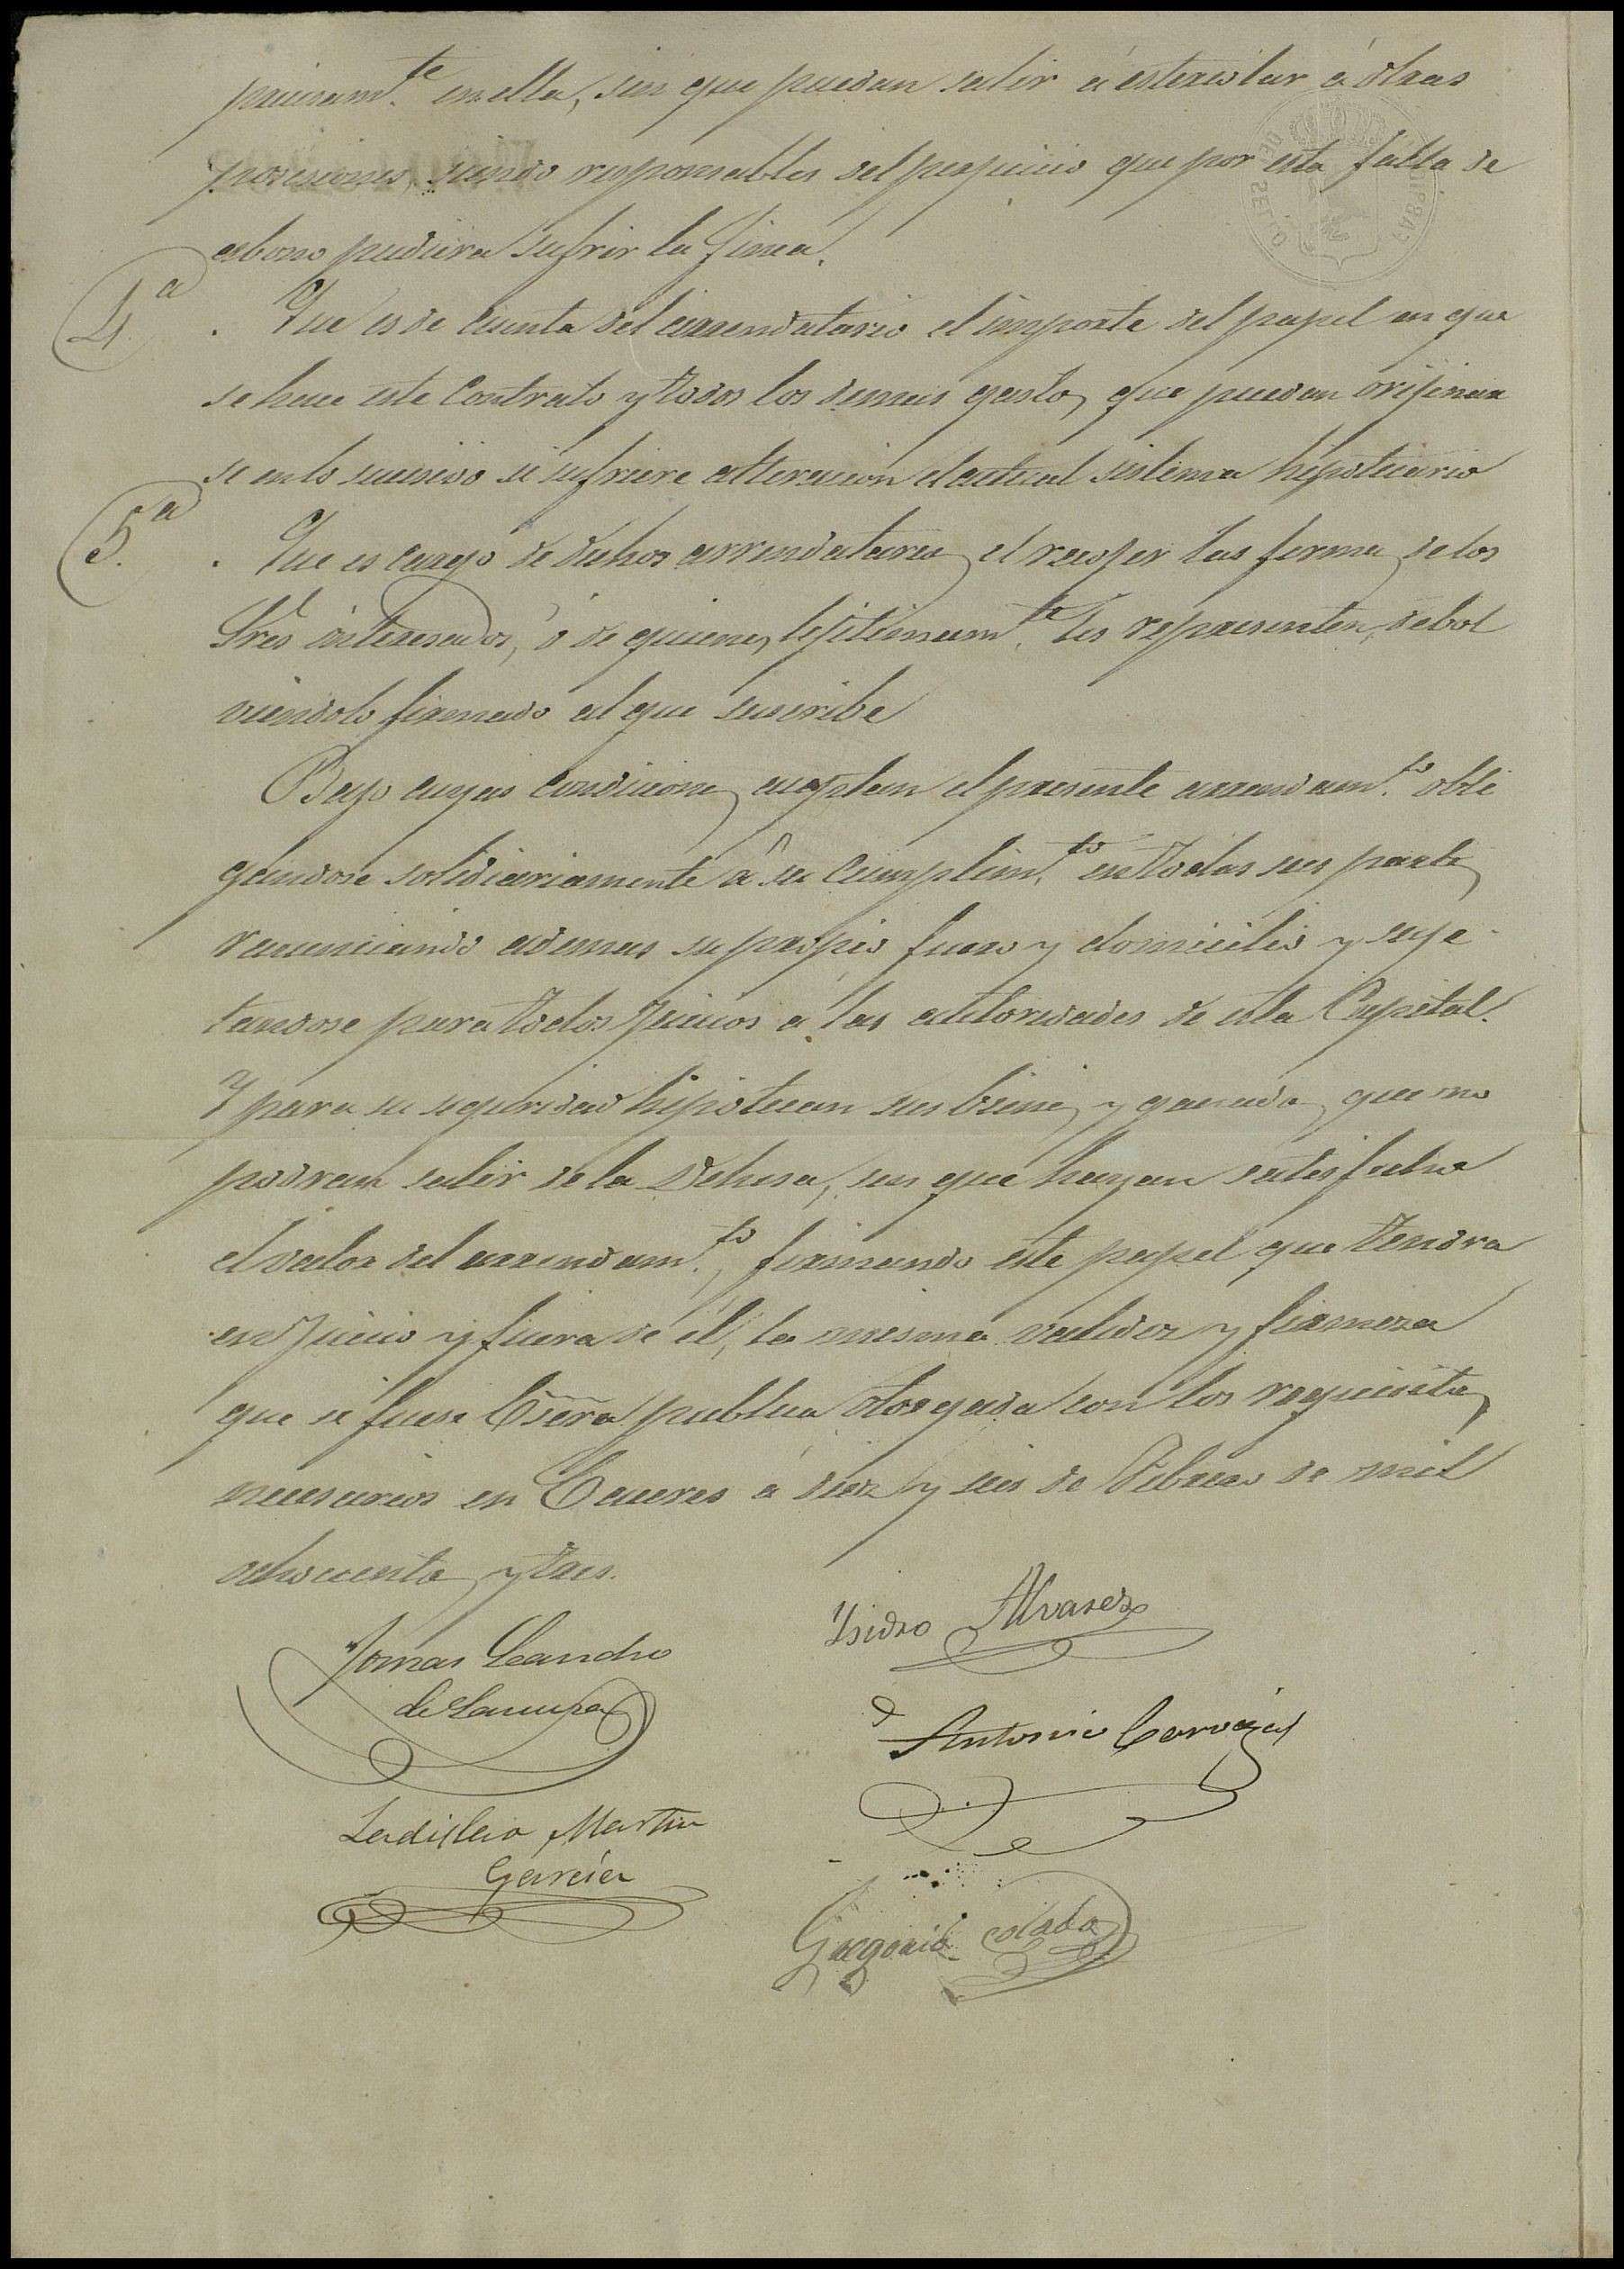 precisam.te en ella, sin que puedan salir á estercolar á otras
posesiones, siendo responsables del perjuicio que por esta falta de
abono pudiera sufrir la finca.
4.a Que es de cuenta del arrendatario el importe del papel en que
se hace este Contrato y todos los demas gastos que puedan orijinar
se en lo sucesivo si sufriere alteracion el actual sistema hipotecario
5.a Que es cargo de dichos arrendatarios el recojer las firmas de los
Sres interesados, ó de quienes lejitimam.te les representen, debol
viendolo firmado al que suscribe
Bajo cuyas condiciones aceptan el presente arrendam.to obli
gandose solidiariamente á su Cumplim.to en todas sus partes
renunciando ademas su propio fuero y domicilio y suje
tandose para todos Juicios á las autoridades de esta Capital.
Y para su seguridad hipotecan sus bienes y ganados que no
podran salir de la Dehesa, sin que hayan satisfecho
el valor del arrendam.to, firmando este papel que tendra
en Juicio y fuera de él, la misma validez y firmeza
que si fuese Escra publica otorgada con los requisitos
necesarios en Caceres á diez y seis de Febrero de mil
ochocientos y tres.
Isidro Alvarez
Tomas Leandro
de
Antonio Carvajal
Ladislao Martin
Garcia
Gregorio Collado